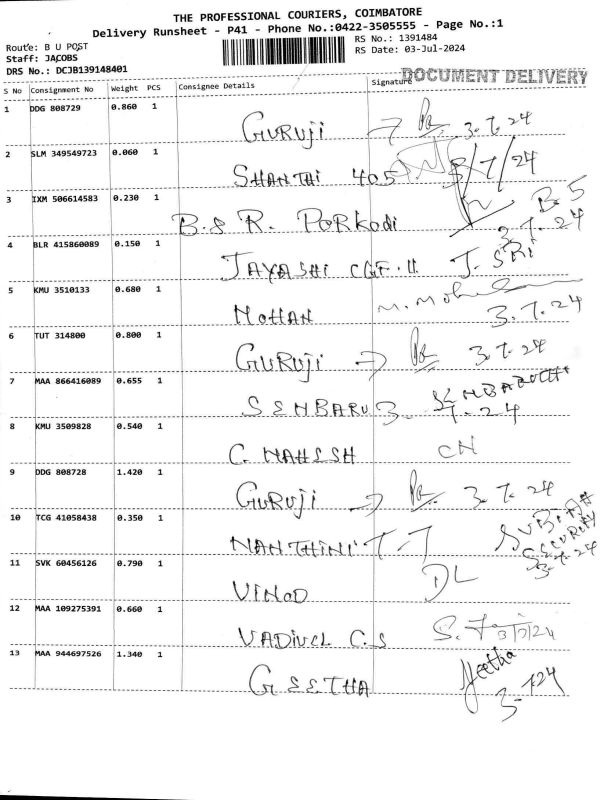 THE PROFESSIONAL COURIERS, COIMBATORE
Delivery Runsheet - P41 - Phone No.:0422-3505555 - Page No.:1
Route: B U POST
RS No.: 1391484
Staff: JACOBS
RS Date: 03-Jul-2024
DRS No.: DCJB139148401
DOCUMENT DELIVERY
S No Consignment No Weight PCS Consignee Details Signature
1 DDG 808729 0.860 1
GURUji → 3.7.24
2 SLM 349549723 0.060 1
SHANTHI 405 3/7/24
3 IXM 506614583 0.230 1
B.S R. PORKODi B.S
3.7.24
4 BLR 415860089 0.150 1
JAYASHI CGF.U J. SRI
5 KMU 3510133 0.680 1
MOHAN M. Mohan
3.7.24
6 TUT 314800 0.800 1
GURUji → 3.7.24
7 MAA 866416089 0.655 1
SENBARU 3.7.24
8 KMU 3509828 0.540 1
C. MAHESH CN
9 DDG 808728 1.420 1
GURUji → 3.7.24
10 TCG 41058438 0.350 1
NANTHINI T-T SUBIAH
SECURITY
3.7.24
11 SVK 60456126 0.790 1
VINOD DL
12 MAA 109275391 0.660 1
VADIVEL C.S 3/7/24
13 MAA 944697526 1.340 1
GEETHA Geetha